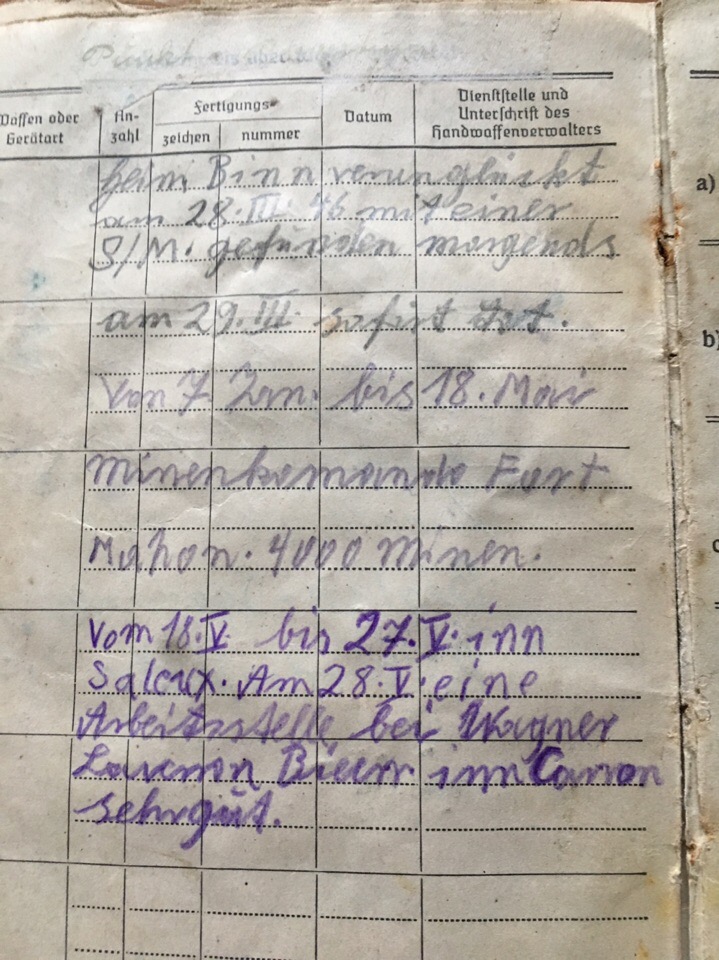 Punkt
Waffen oder Gerätart
An-zahl
Fertigungs-
zeichen
nummer
Datum
Dienststelle und Unterschrift des Handwaffenverwalters
a)
b)
beim Binn verunglückt
am 28. III. 46 mit einer
S/M. gefunden morgends
am 29. III. sofort tot.
Von 7 Jan. bis 18. Mai
Minenkomando Fort
Mahon. 4000 Minen.
Vom 18. V. bis 27. V. inn
Saleux. Am 28. V. eine
Arbeitsstelle bei Wagner
inn
sehr gut.